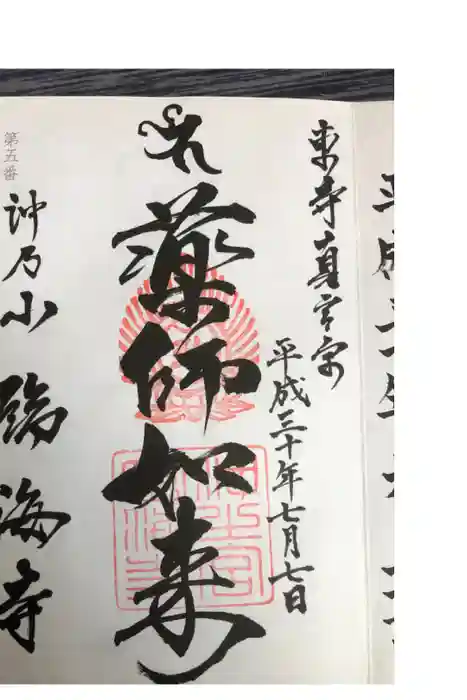 平成三十年
東寺真言宗
平成三十年七月七日
薬師如来
第五番
沖乃小
臨海寺